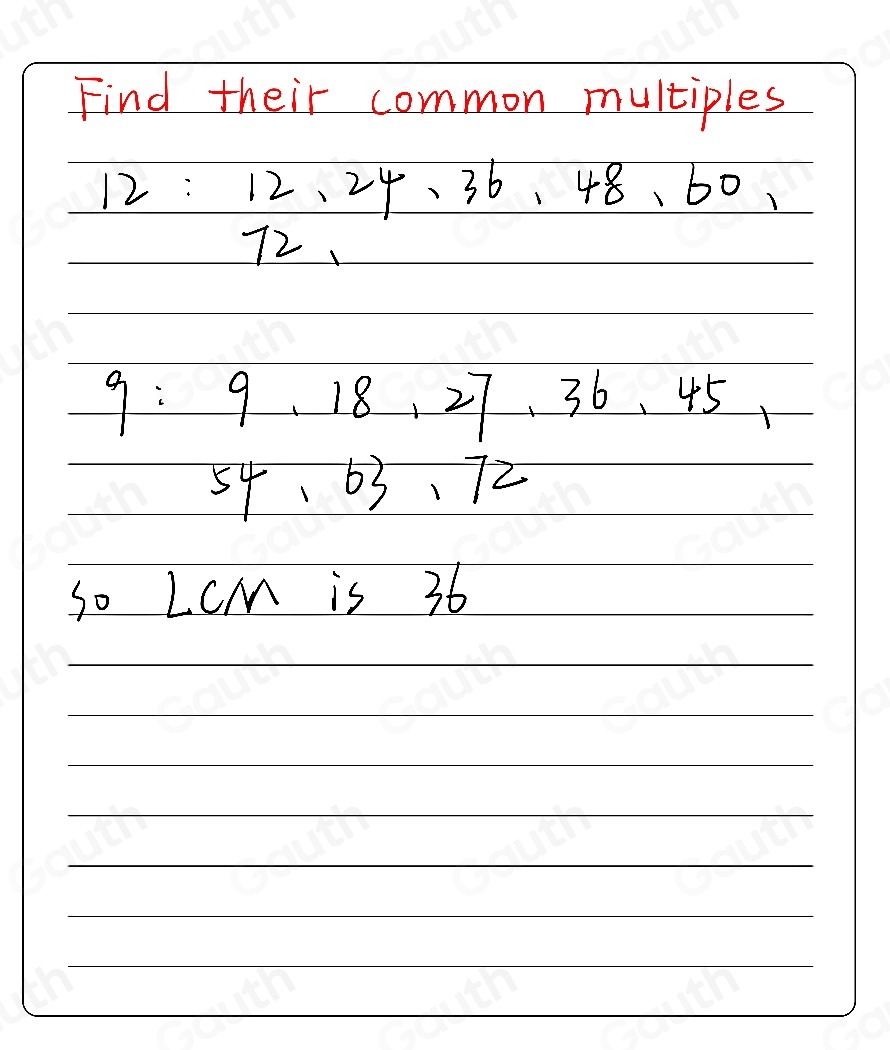 Find their common multiples
12 : 12、24、36、48、60、
72、
9 : 9、18、27、36、45、
54、63、72
so LCM is 36